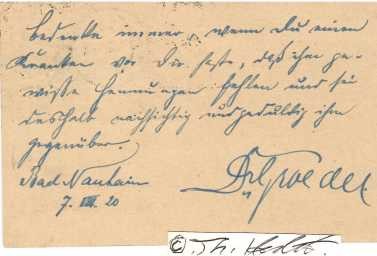 bedenke immer, wenn Du einen
Kranken vor Dir hast, daß ihm ge-
wisse Hemmungen fehlen und sei
deshalb nachsichtig und geduldig ihm
gegenüber.
Bad Nauheim
7. VIII. 20
Dr Groedel
©